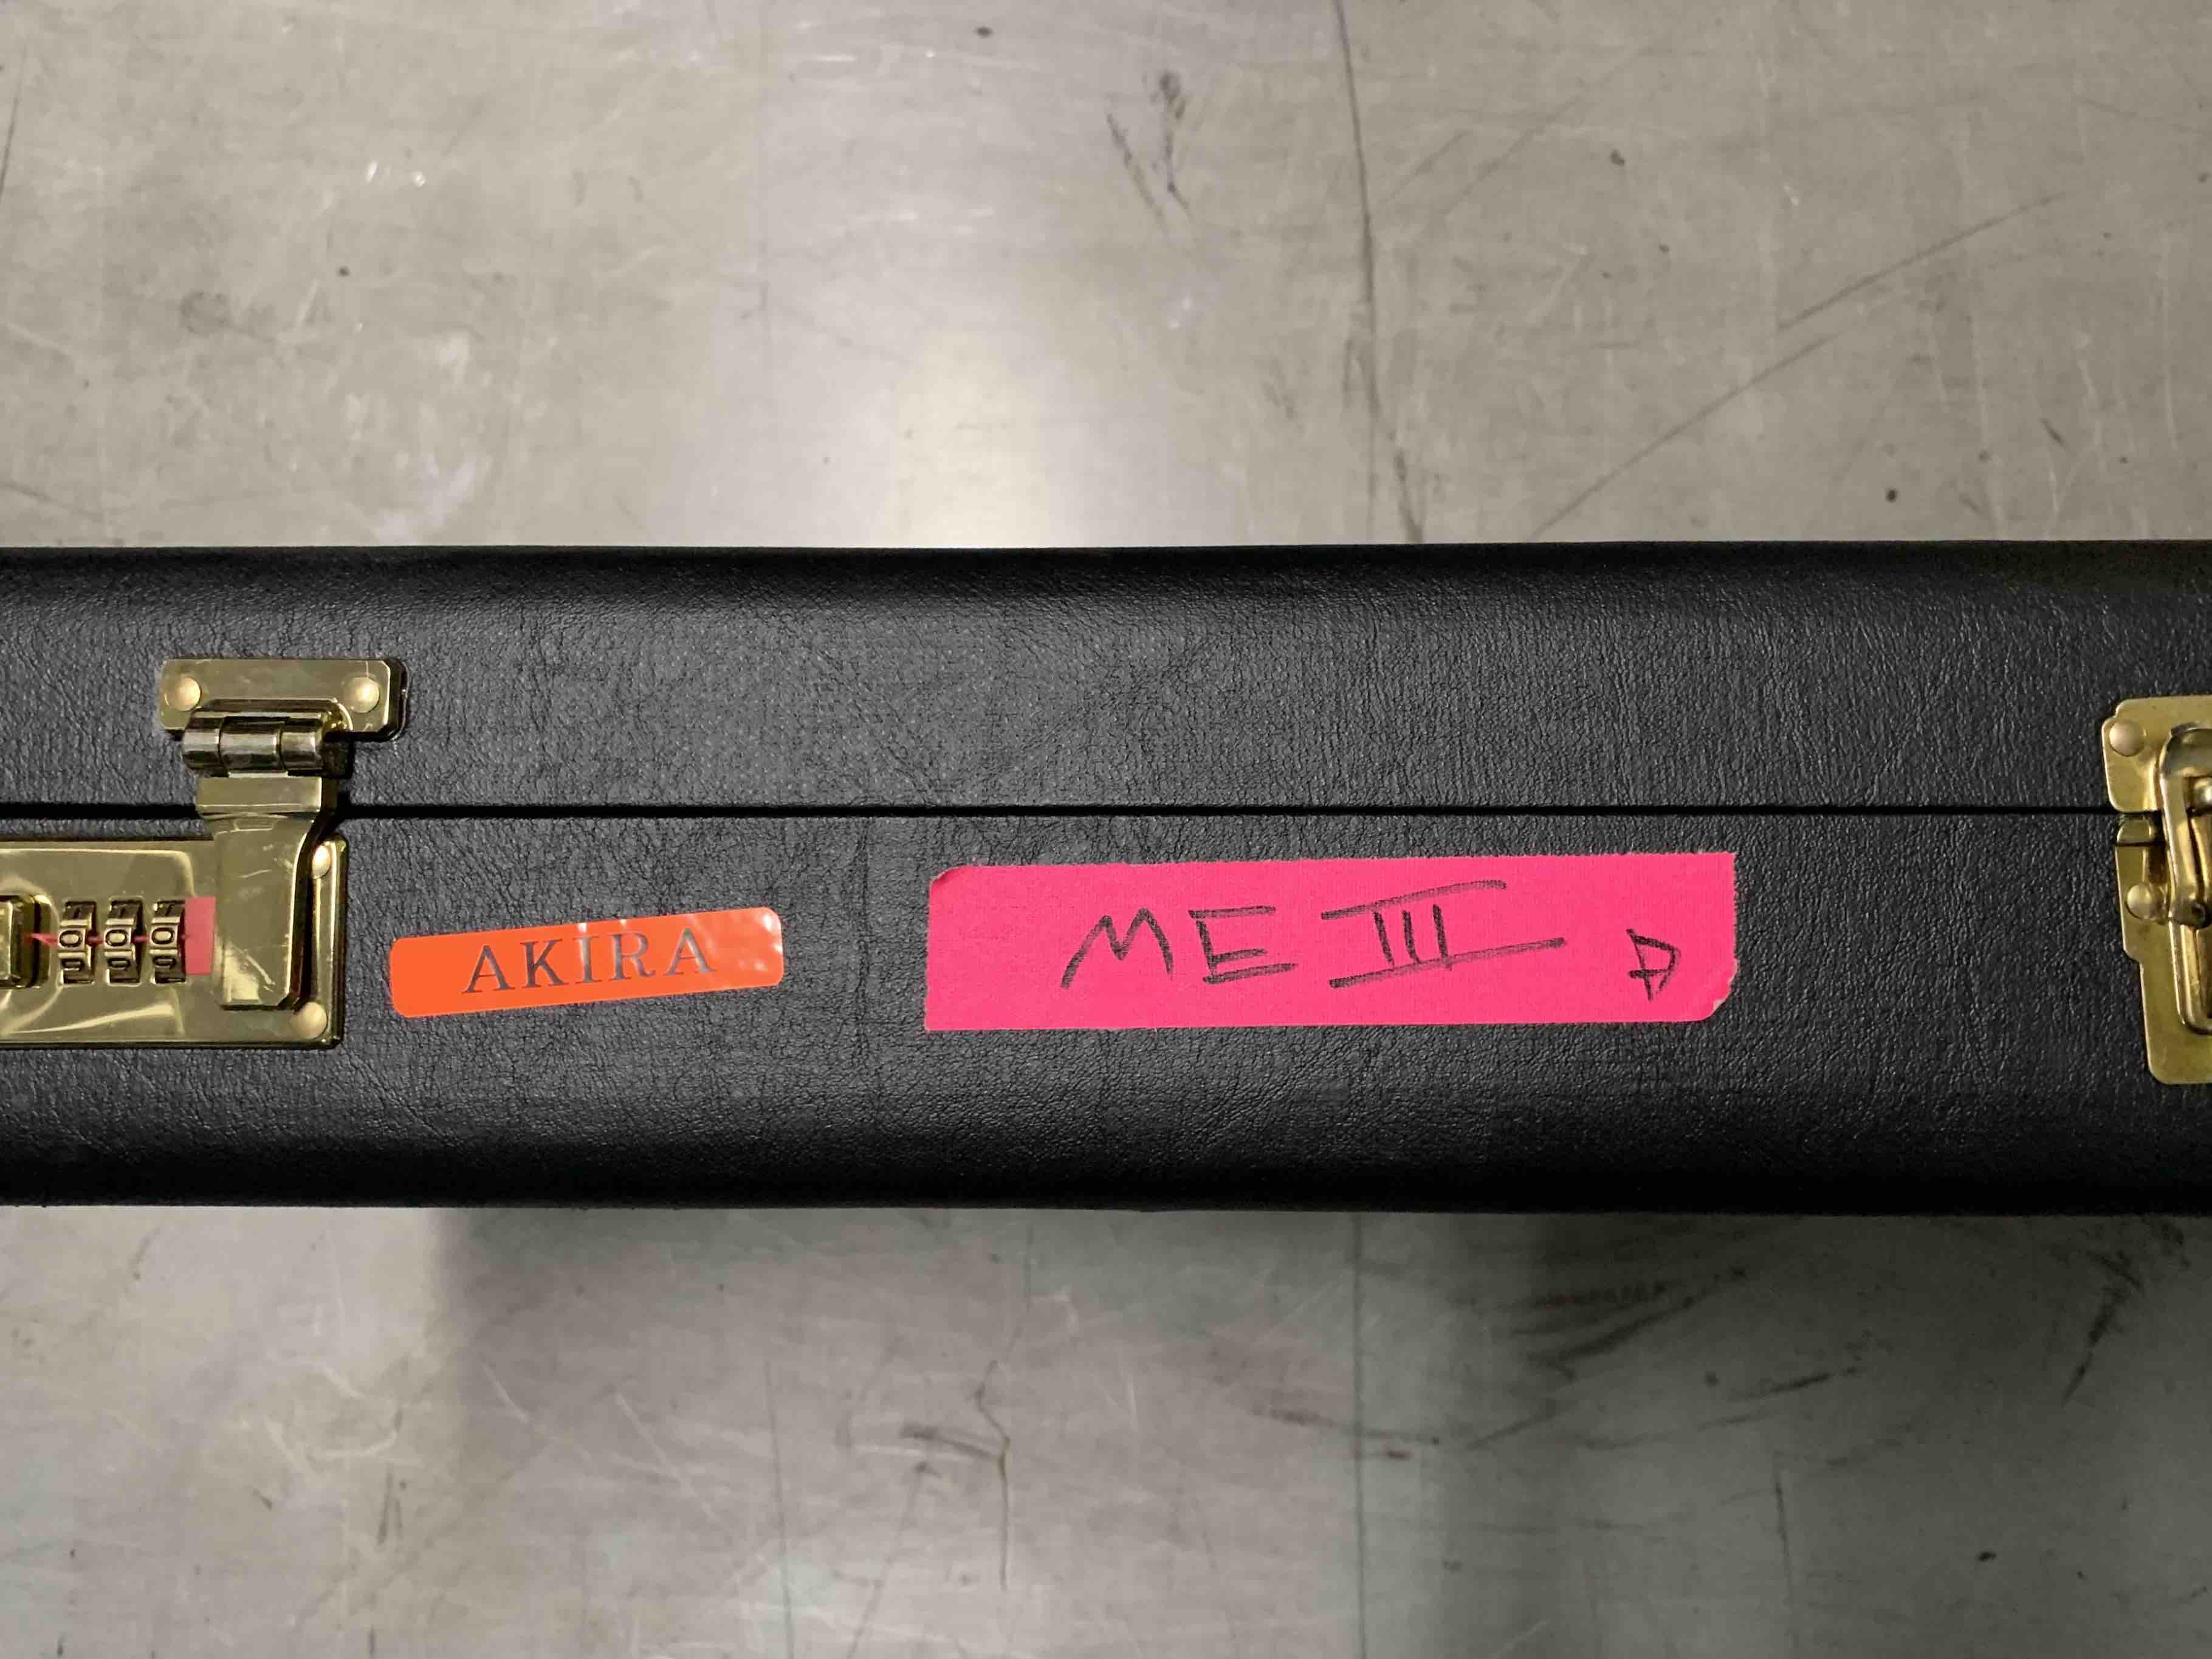 000
AKIRA
ME III D